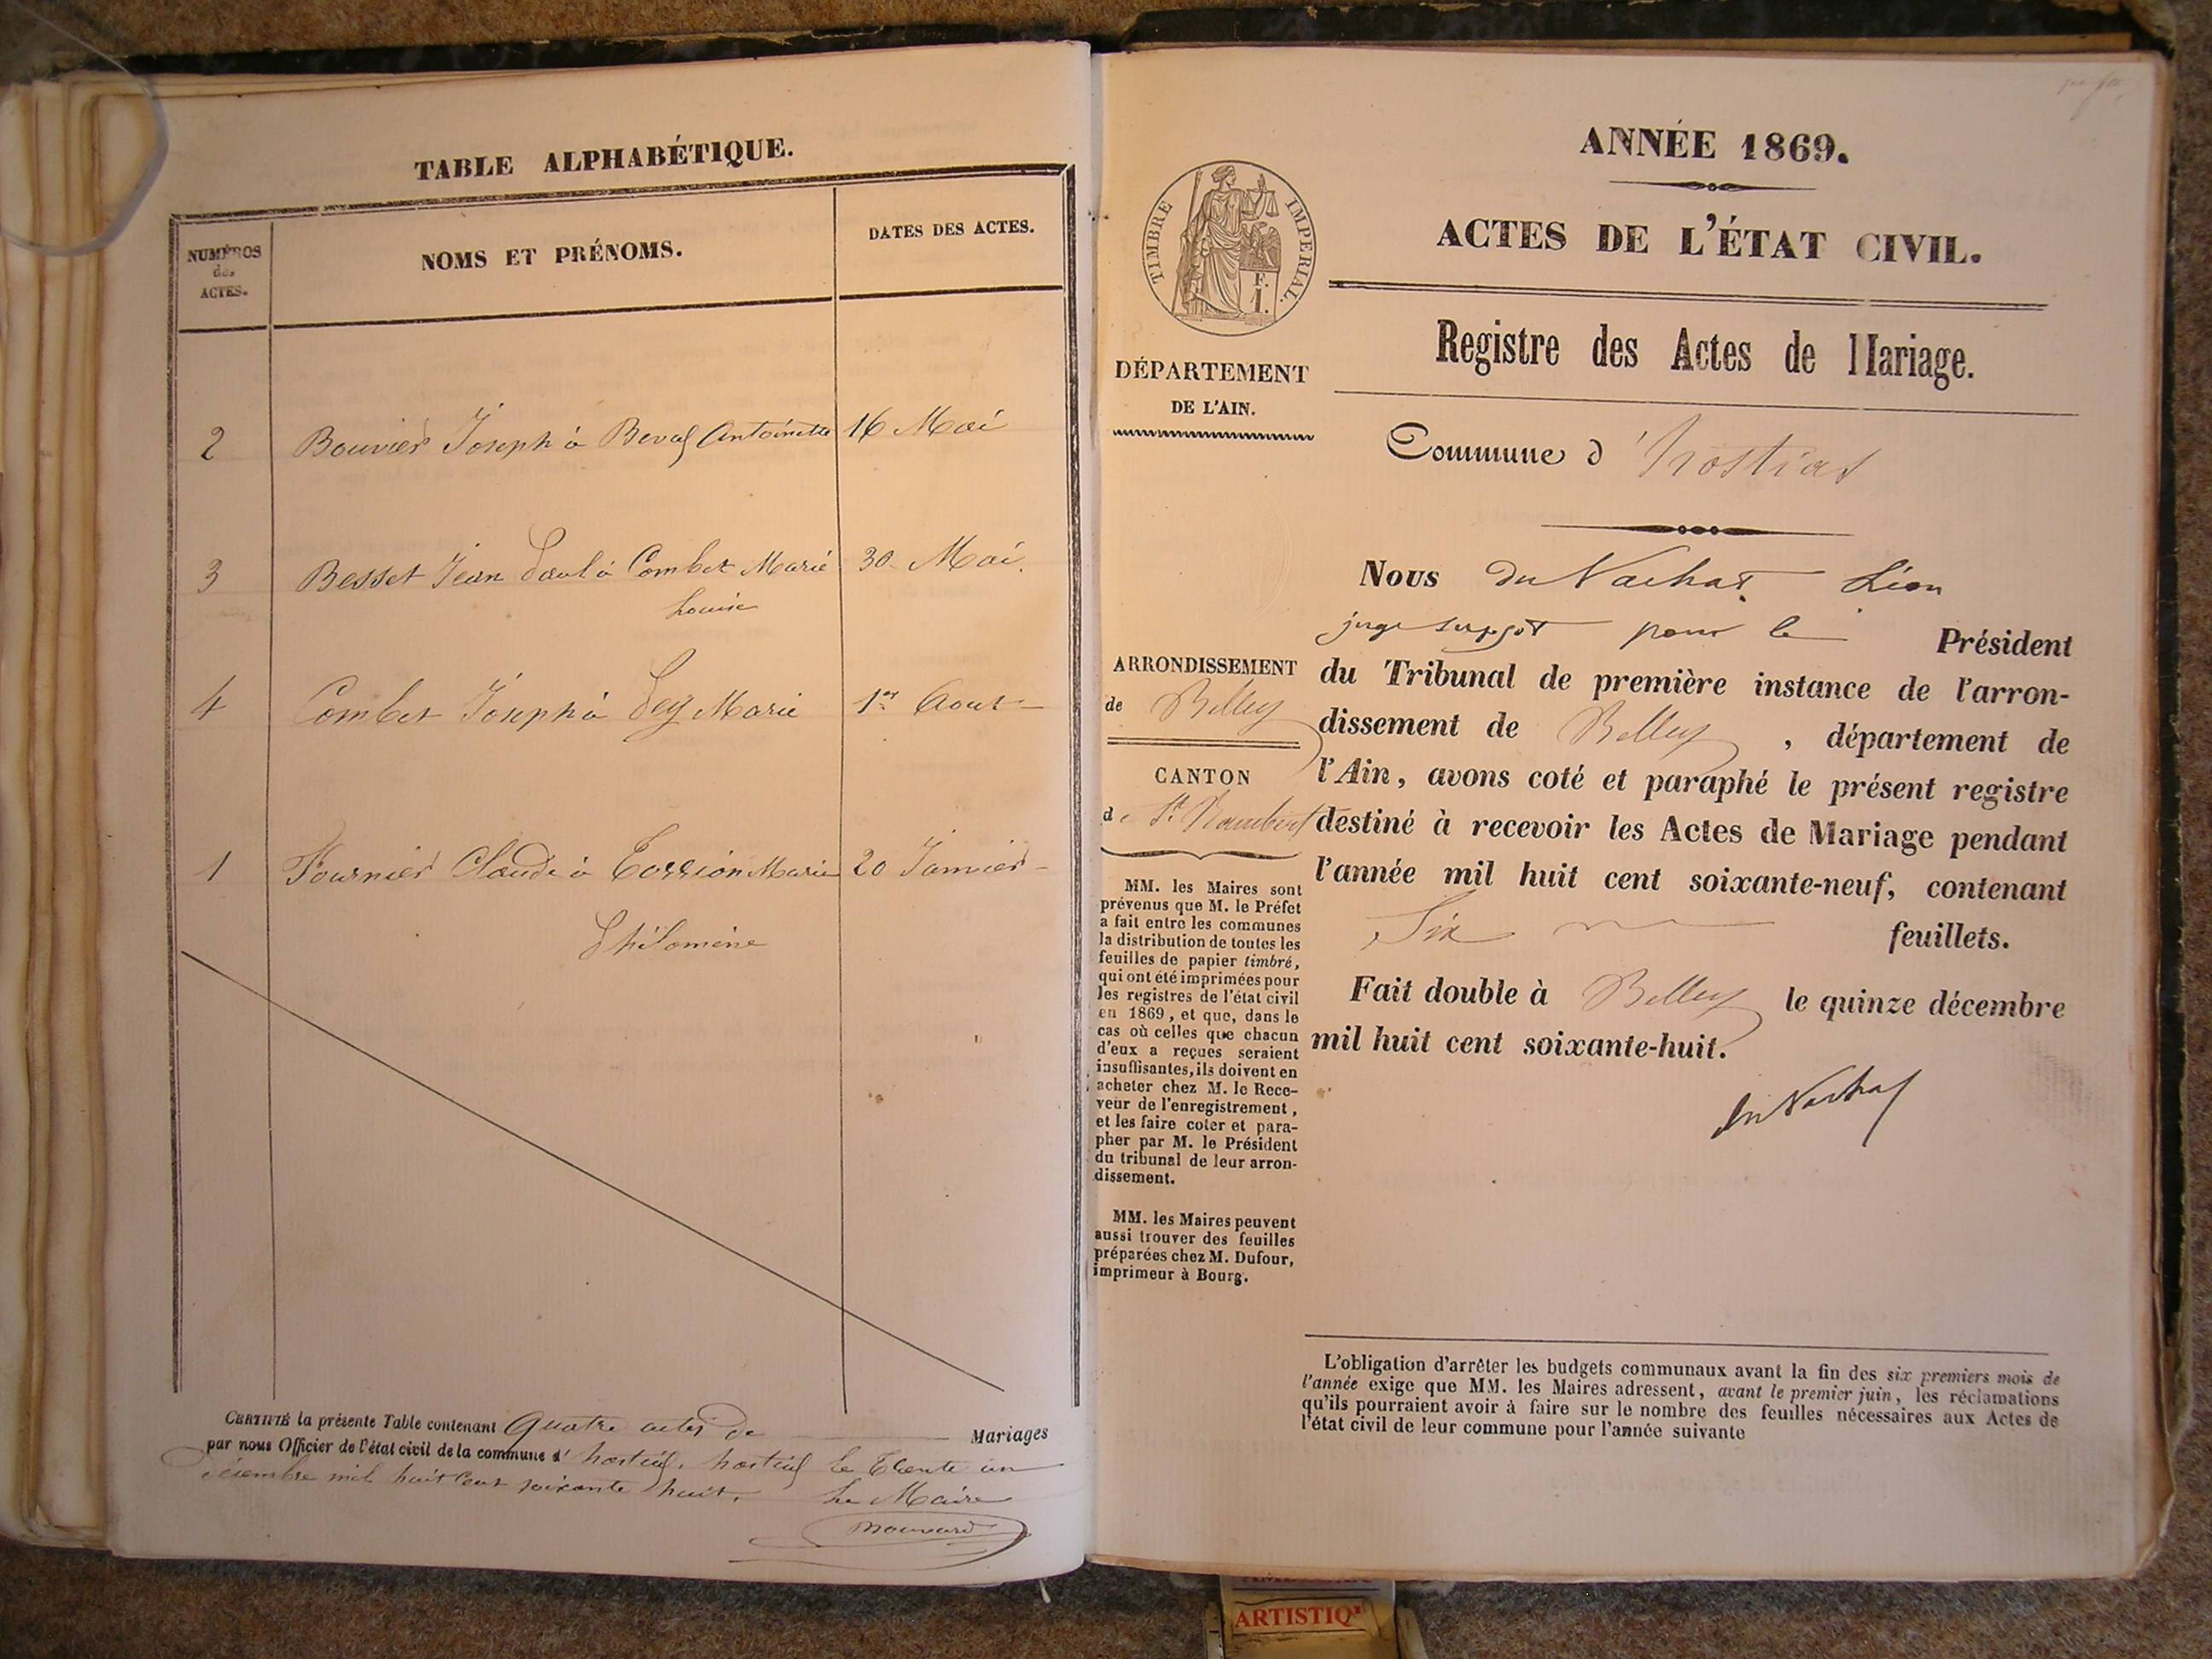 TABLE ALPHABÉTIQUE.
NUMÉROS
des
ACTES.
NOMS ET PRÉNOMS.
DATES DES ACTES.
2 Bouvier Joseph à Antoinette 16 Mai
3 Besset Jean Paul à Combet Marie 30 Mai.
Louise
4 Combet Joseph à Marie 1er Aout
1 Fournier Claude à Marie 20 Janvier
Philomène
CERTIFIÉ la présente Table contenant Quatre actes de Mariages
par nous Officier de l'état civil de la commune d' hostias. hostias le Trente un
décembre mil huit cent soixante huit. Le Maire
ANNÉE 1869.
ACTES DE L'ÉTAT CIVIL.
Registre des Actes de Mariage.
TIMBRE IMPERIAL.
F.
1.
DÉPARTEMENT
DE L'AIN.
Commune d'hostias
Nous du Nachat Léon
juge suppt pour le Président
du Tribunal de première instance de l'arron-
dissement de Belley, département de
l'Ain, avons coté et paraphé le présent registre
destiné à recevoir les Actes de Mariage pendant
l'année mil huit cent soixante-neuf, contenant
Six feuillets.
Fait double à Belley le quinze décembre
mil huit cent soixante-huit.
du Nachat
ARRONDISSEMENT
de Belley
CANTON
de St. Rambert
MM. les Maires sont
prévenus que M. le Préfet
a fait entre les communes
la distribution de toutes les
feuilles de papier timbré,
qui ont été imprimées pour
les registres de l'état civil
en 1869, et que, dans le
cas où celles que chacun
d'eux a reçues seraient
insuffisantes, ils doivent en
acheter chez M. le Rece-
veur de l'enregistrement,
et les faire coter et para-
pher par M. le Président
du tribunal de leur arron-
dissement.
MM. les Maires peuvent
aussi trouver des feuilles
préparées chez M. Dufour,
imprimeur à Bourg.
L'obligation d'arrêter les budgets communaux avant la fin des six premiers mois de
l'année exige que MM. les Maires adressent, avant le premier juin, les réclamations
qu'ils pourraient avoir à faire sur le nombre des feuilles nécessaires aux Actes de
l'état civil de leur commune pour l'année suivante
ARTISTIQ